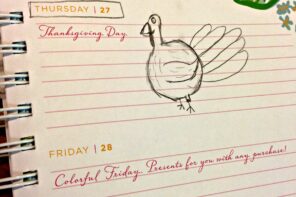 THURSDAY | 27
Thanksgiving Day.
FRIDAY | 28
Colorful Friday. Presents for you with any purchase!